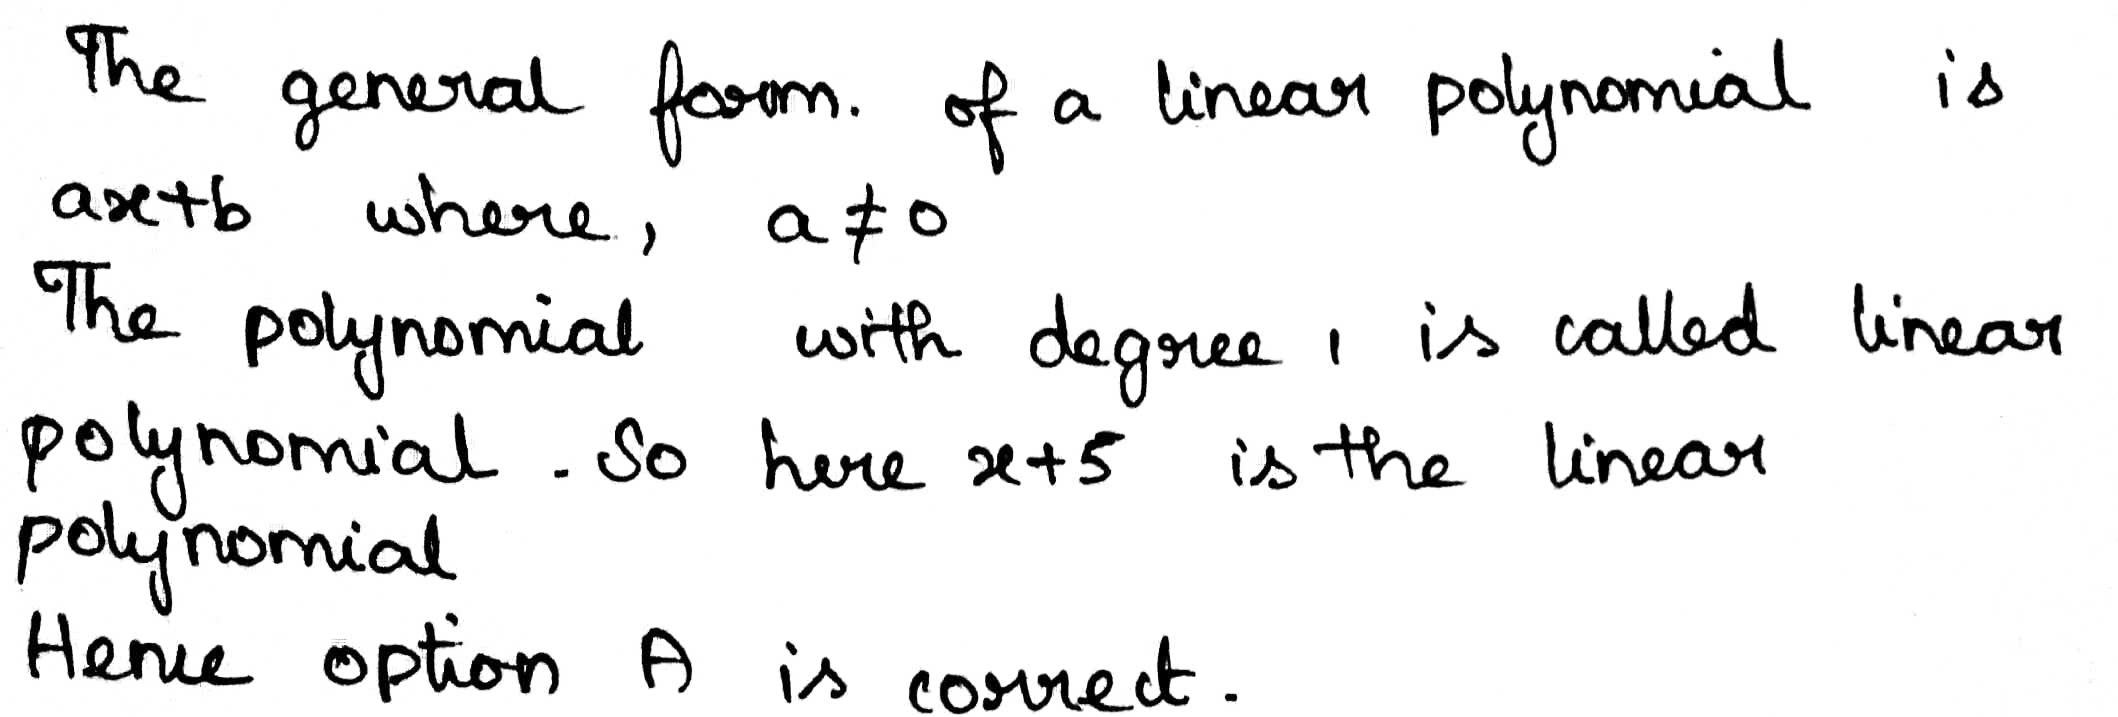 The general form. of a linear polynomial is
ax+b where, a ≠ 0
The polynomial with degree 1 is called linear
polynomial. So here x+5 is the linear
polynomial
Hence option A is correct.